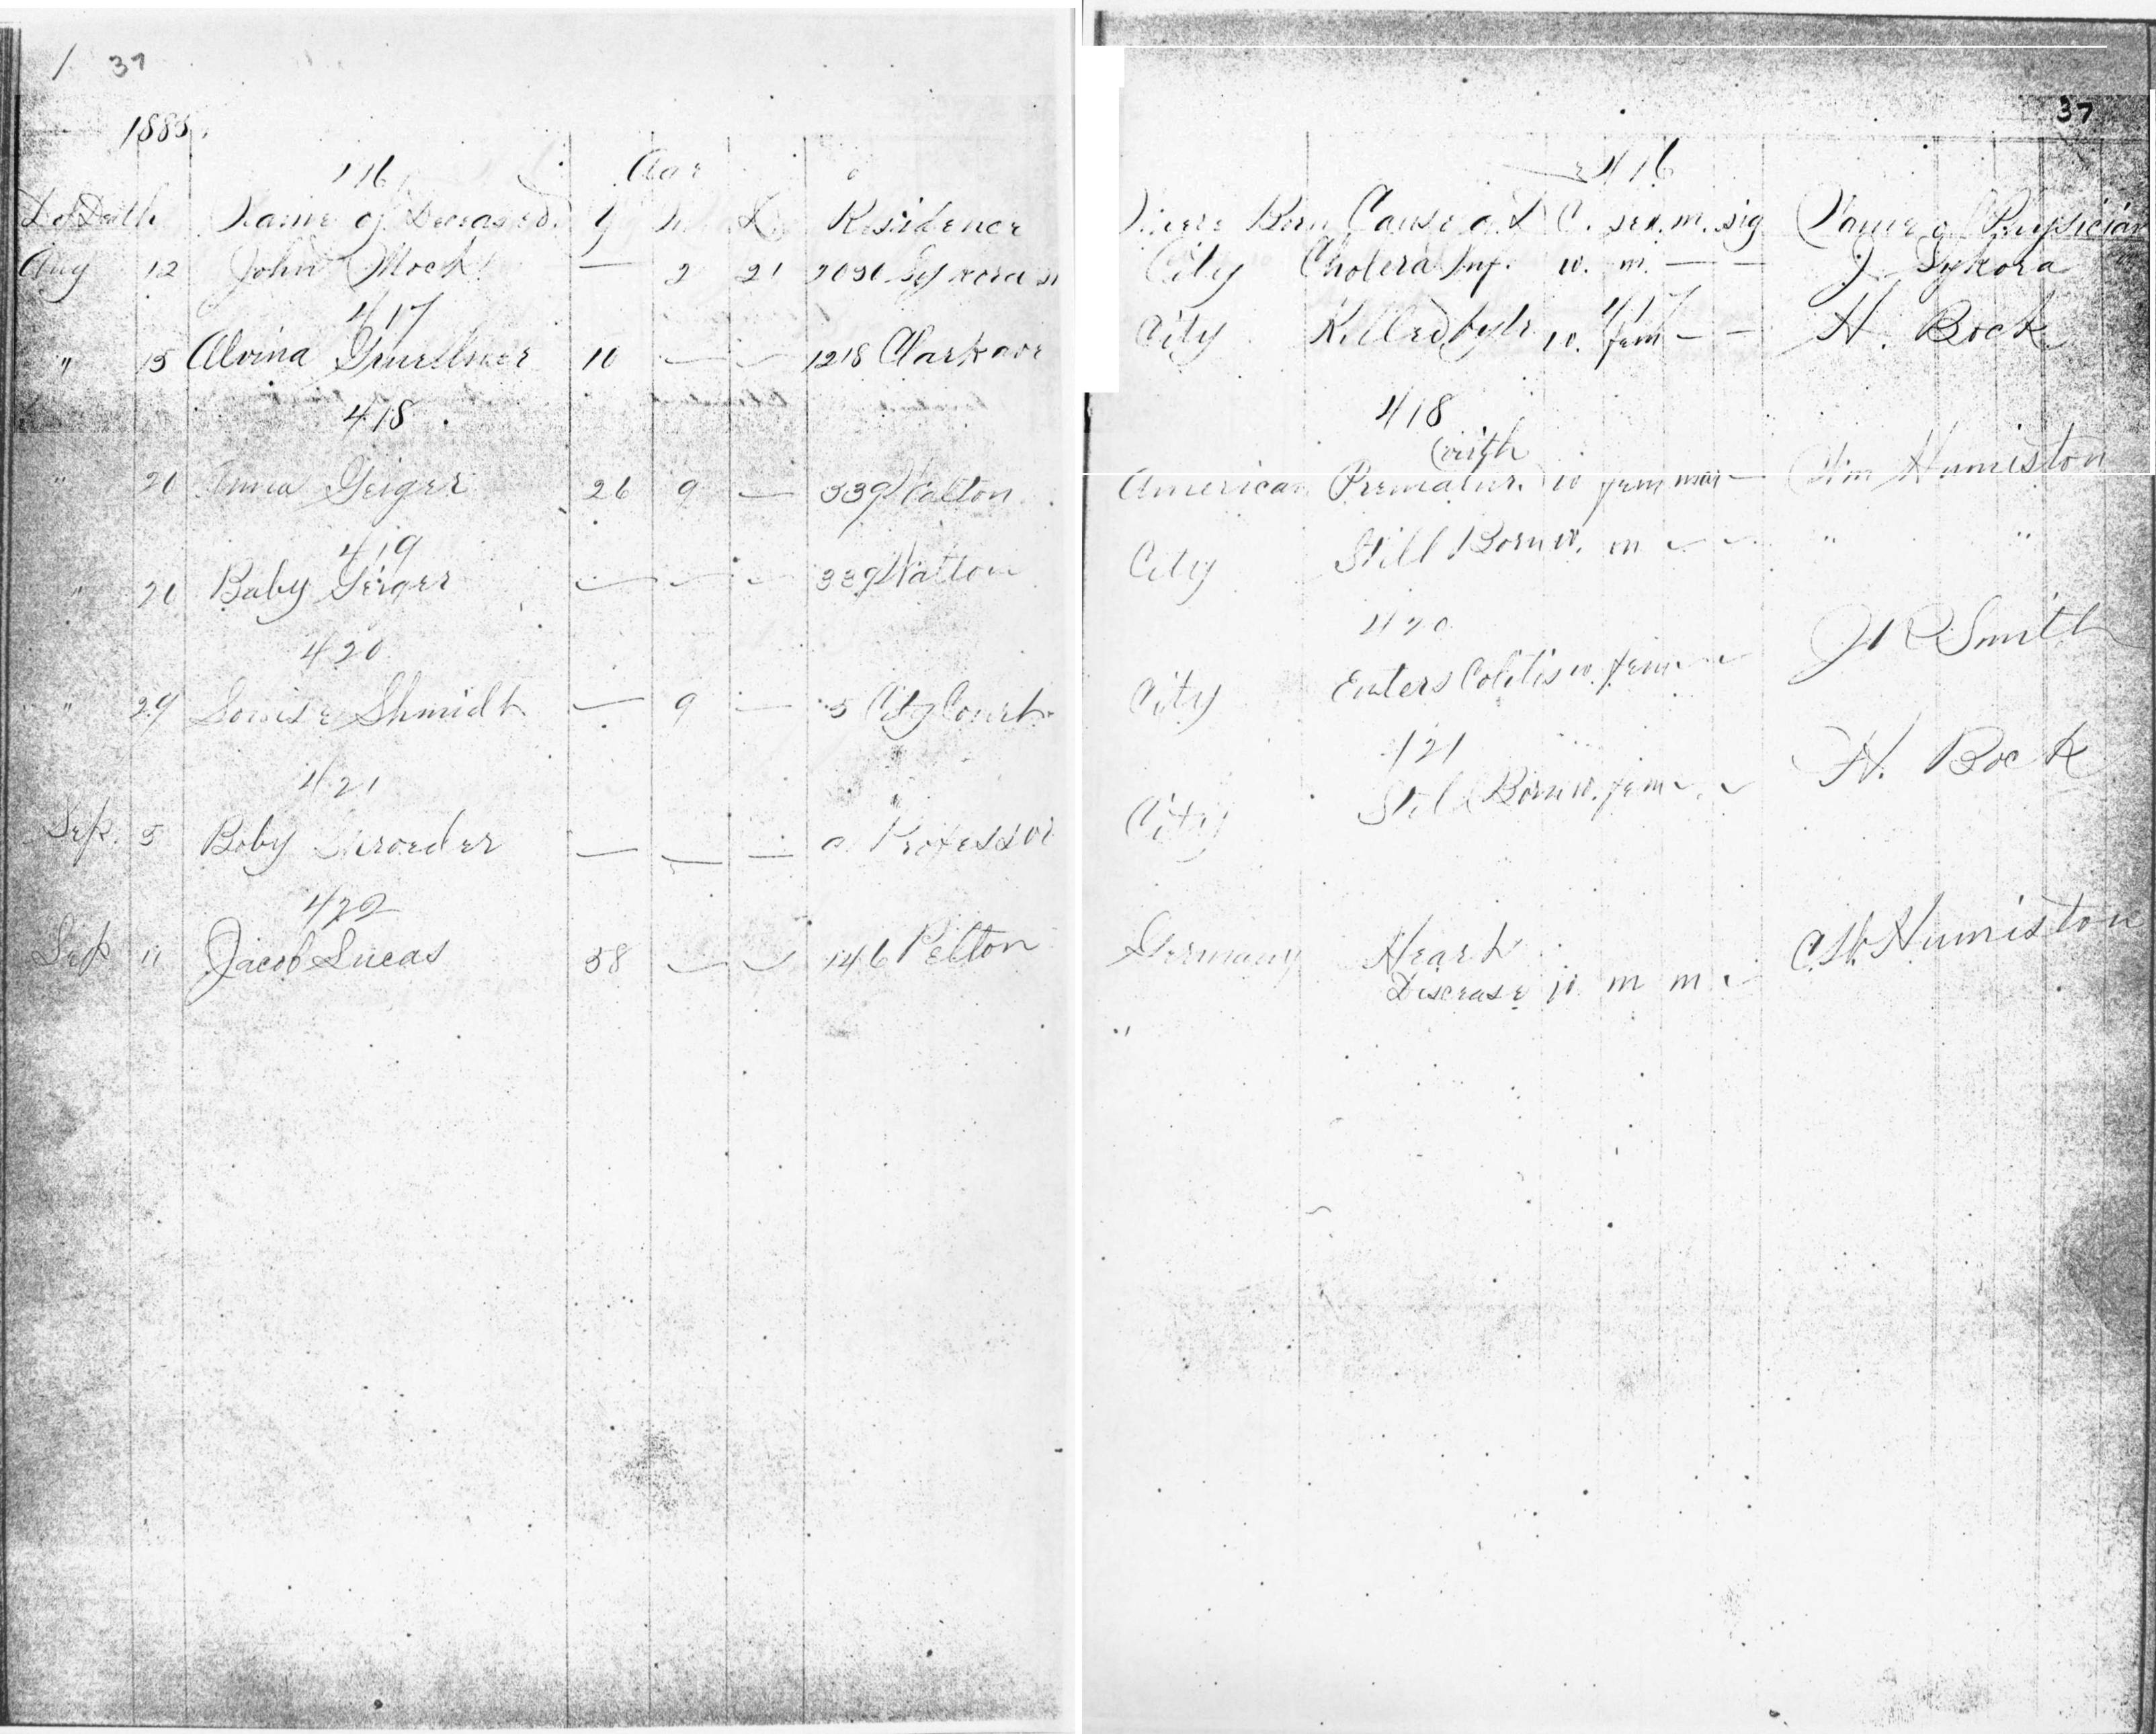 / 37
1885.
416
Age
D. of Death Name of Deceased. y m D. Residence
Aug 12 John Mock — 2 21 2030 Sykora st
417
" 15 Alvina 10 — — 1218 Clark ave
418
" 20 Anna Geiger 26 9 — 339 Walton
419
" 20 Baby Geiger — — — 339 Walton
420
" 29 Louise Shmidt — 9 — 5 City Court
421
Sep. 5 Boby Schroeder — — — Professor
422
Sep 11 Jacob Lucas 58 — — 146 Pelton
37
416
Where Born Cause of D C. sex. m. sig Name of Physician
City Cholera Inf. w. m. — — J. Sykora
417
City Killed by w. fem — — H. Bock
418
Birth
American Prematur. w fem mar — Wm Humiston
City Still Born w. m — — " "
420
City Entero Colitis w. fem — — J R Smith
421
City Still Born w. fem — — H. Bock
Germany Heart
Disease w m m — C.W. Humiston
"